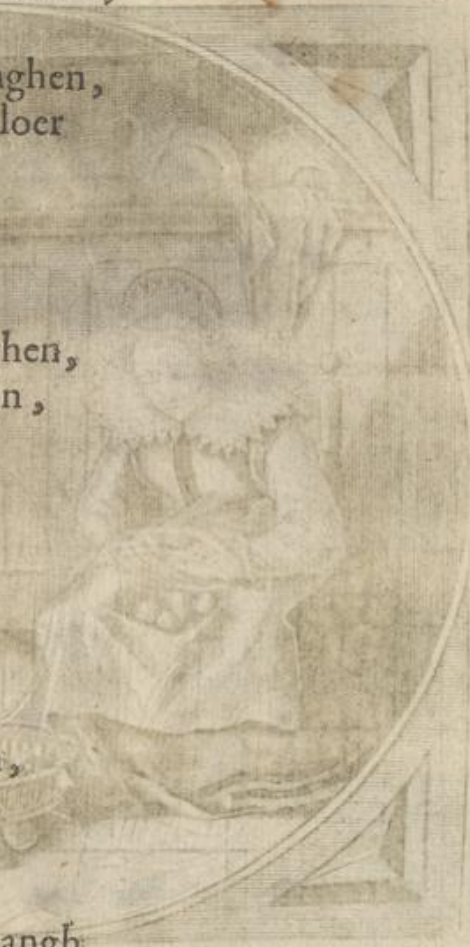 ghen,
loer
hen,
n,
,
angh